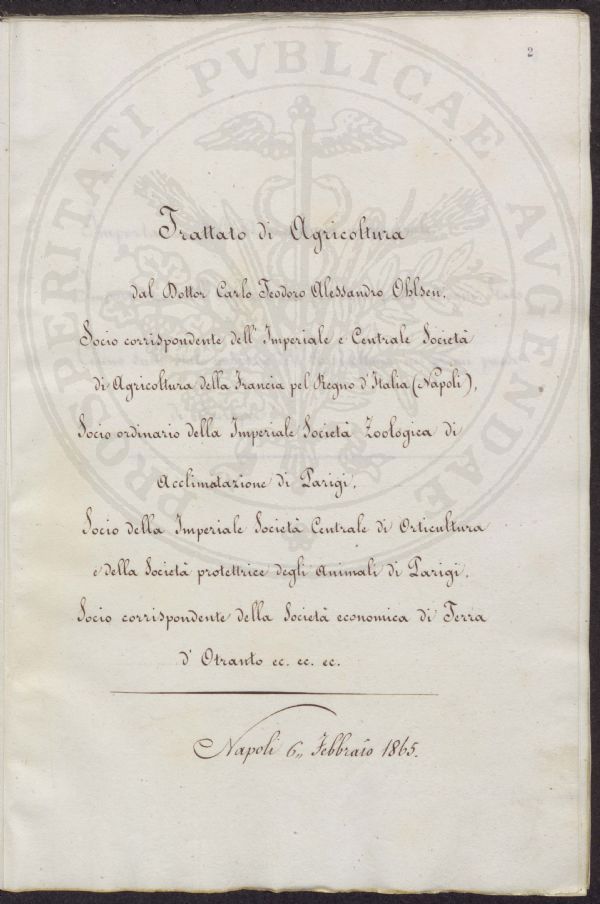 2
PROSPERITATI PVBLICAE AVGENDAE
Trattato di Agricoltura
dal Dottor Carlo Teodoro Alessandro Ohlsen,
Socio corrispondente dell' Imperiale e Centrale Società
di Agricoltura della Francia pel Regno d'Italia (Napoli),
Socio ordinario della Imperiale Società Zoologica di
Acclimatazione di Parigi,
Socio della Imperiale Società Centrale di Orticultura
e della Società protettrice degli Animali di Parigi,
Socio corrispondente della Società economica di Terra
d' Otranto ec. ec. ec.
Napoli 6,, Febbraio 1865.